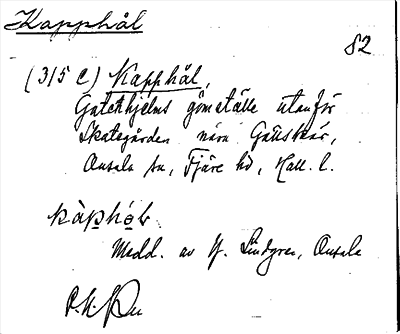 Kapphål
82
(315 c) Kapphål,
Gatehhjelms gömställe utanför
Skategården nära Gåsskär,
Onsala sn, Fjäre hd, Hall. l.
Medd. av Lindgren, Onsala